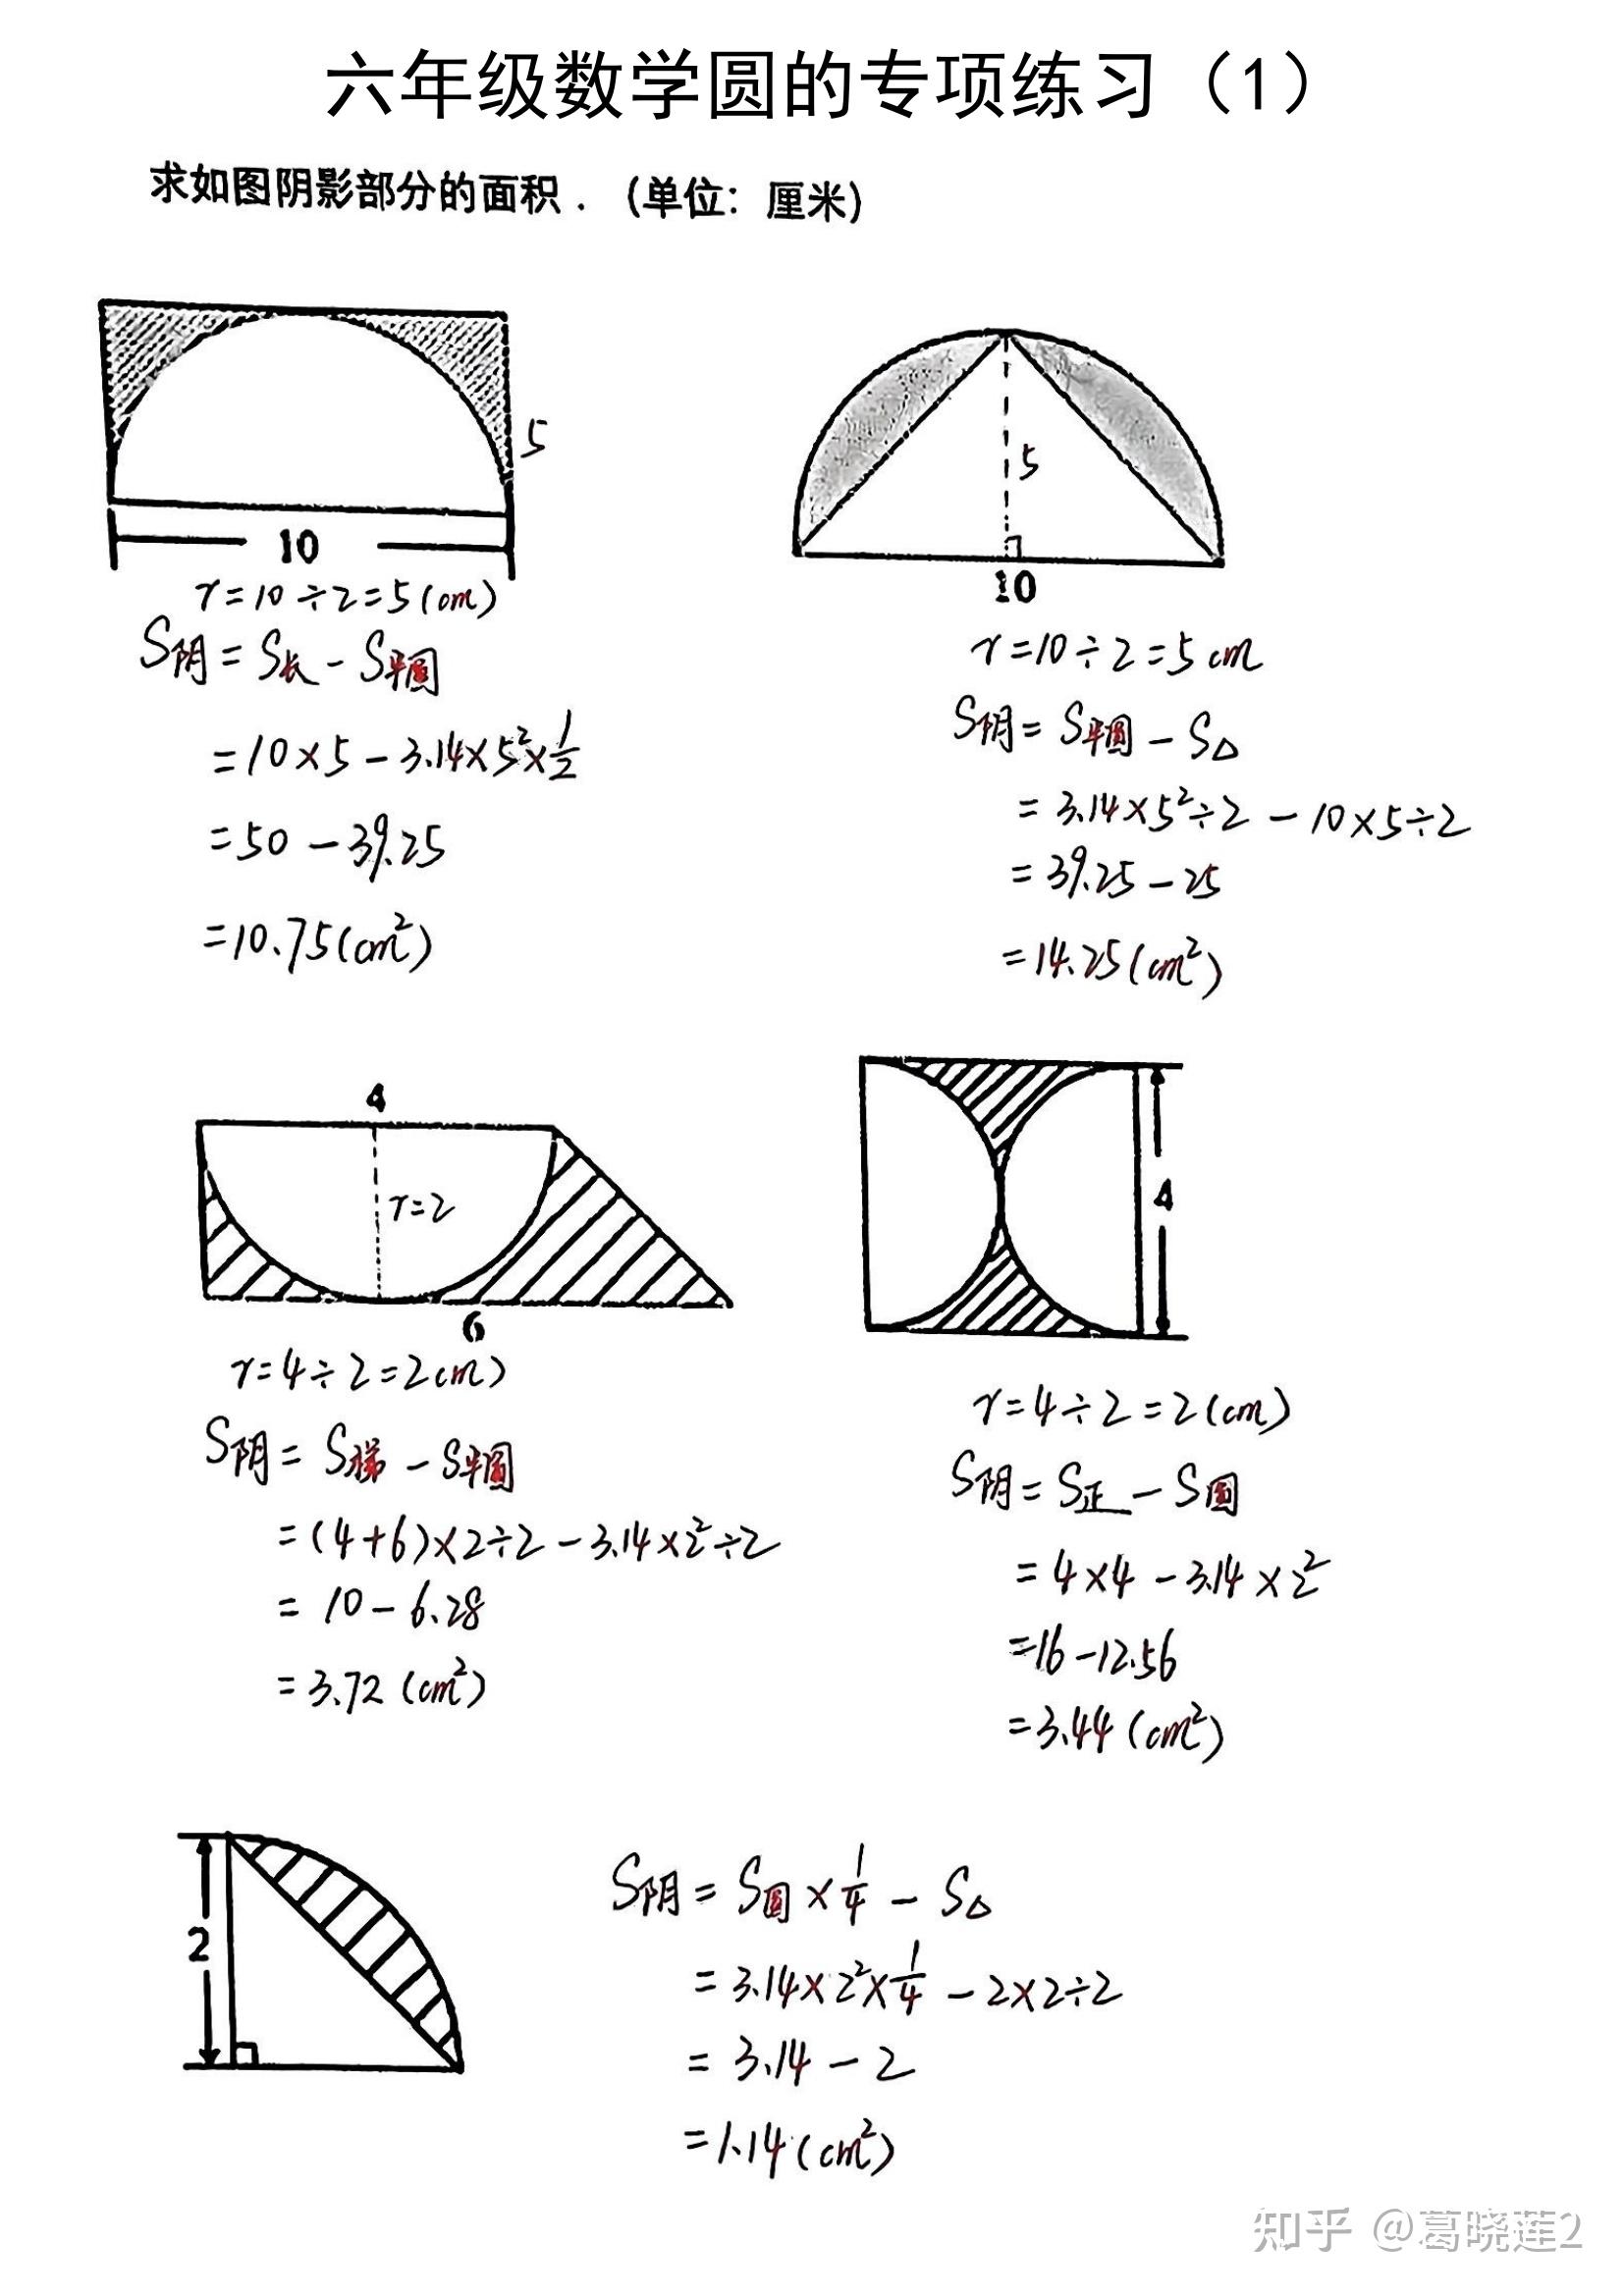 六年级数学圆的专项练习（1）
求如图阴影部分的面积．（单位：厘米）
5
10
r=10÷2=5(cm)
S阴=S长-S半圆
=10×5-3.14×5²×1/2
=50-39.25
=10.75(cm²)
5
10
r=10÷2=5cm
S阴=S半圆-S△
=3.14×5²÷2-10×5÷2
=39.25-25
=14.25(cm²)
4
r=2
6
r=4÷2=2cm)
S阴=S梯-S半圆
=(4+6)×2÷2-3.14×2²÷2
=10-6.28
=3.72(cm²)
4
r=4÷2=2(cm)
S阴=S正-S圆
=4×4-3.14×2²
=16-12.56
=3.44(cm²)
2
S阴=S圆×1/4-S△
=3.14×2²×1/4-2×2÷2
=3.14-2
=1.14(cm²)
知乎 @葛晓莲2